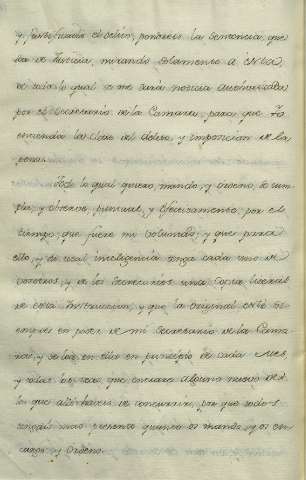 y justificado el delito, pondreis la Sentencia que
sea de Justicia, mirando solamente a ella,
de todo lo qual se me dará noticia
por el Secretario de la Camara, para que Yo
entienda la clase del delito, y imposicion de la
pena.
Todo lo qual quiero, mando, y ordeno, se cum-
pla, y observe puntual, y efectivamente por el
tiempo que fuere mi voluntad, y que para
ello, y su real inteligencia tenga cada uno de
vosotros, y de los Secretarios una Copia literal
de esta Instruccion, y que la original esté
siempre en poder de mi Secretario de la Cama-
ra, y se lea en ella en principio de cada Mes,
y todas las veces que entrare alguno nuevo de
los que haveis de concurrir, por que todos
tengais mui presente quanto os mando, y os en-
cargo, y Ordeno.